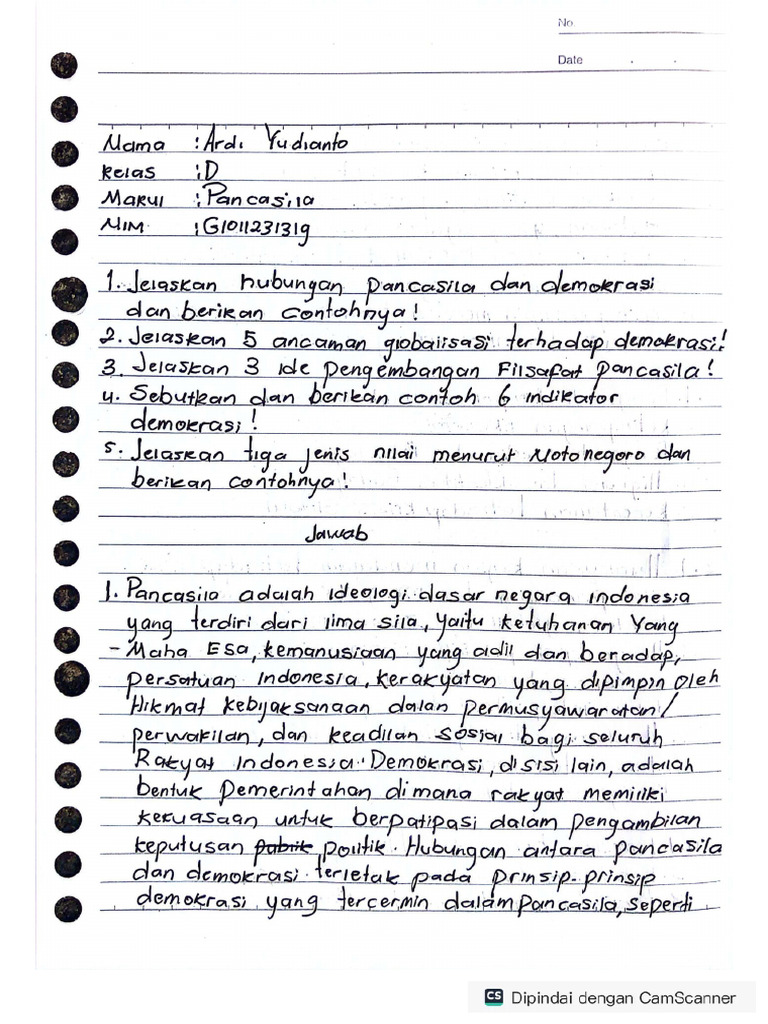 No.
Date . .
Nama : Ardi Yudianto
Kelas : D
Makul : Pancasila
NIM : G1011231319
1. Jelaskan hubungan Pancasila dan demokrasi
dan berikan contohnya!
2. Jelaskan 5 ancaman globalisasi terhadap demokrasi!
3. Jelaskan 3 ide pengembangan Filsafat Pancasila!
4. Sebutkan dan berikan contoh 6 indikator
demokrasi!
5. Jelaskan tiga jenis nilai menurut Notonegoro dan
berikan contohnya!
Jawab
1. Pancasila adalah ideologi dasar negara Indonesia
yang terdiri dari lima sila, yaitu ketuhanan Yang
- Maha Esa, kemanusiaan yang adil dan beradap,
persatuan Indonesia, kerakyatan yang dipimpin oleh
Hikmat kebijaksanaan dalan Permusyawaratan/
perwakilan, dan keadilan sosial bagi seluruh
Rakyat Indonesia. Demokrasi, disisi lain, adalah
bentuk Pemerintahan dimana rakyat memiliki
kekuasaan untuk berpatipasi dalam pengambilan
keputusan pabrik politik. Hubungan antara Pancasila
dan demokrasi terletak pada Prinsip-prinsip
demokrasi yang tercermin dalam Pancasila, seperti
CS Dipindai dengan CamScanner